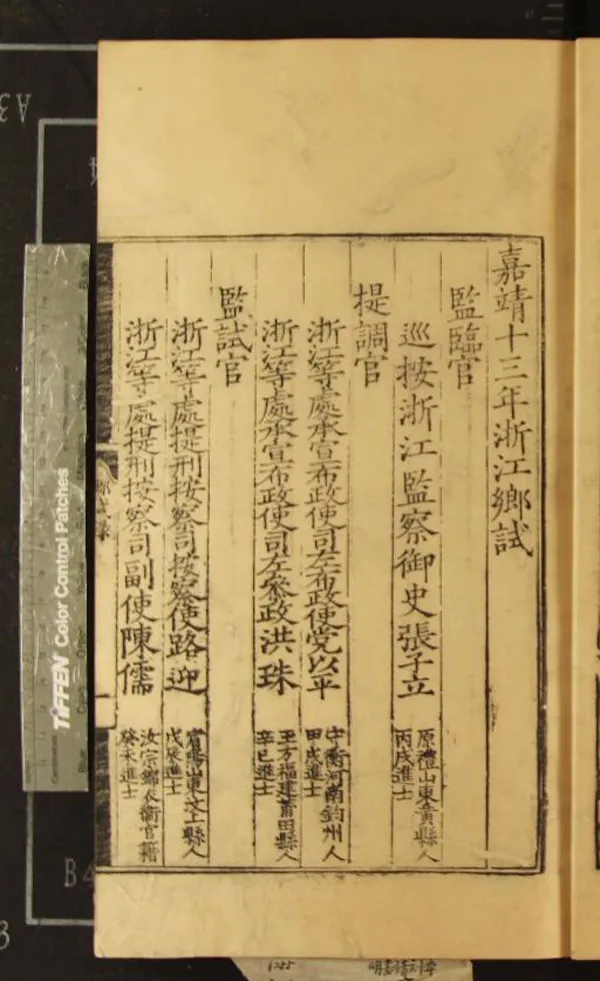 嘉靖十三年浙江鄉試
監臨官
巡按浙江監察御史張子立
原禮山東黃縣人
丙戌進士
提調官
浙江等處承宣布政使司左布政使党以平
守衡河南鈞州人
甲戌進士
浙江等處承宣布政使司左參政洪珠
玉方福建莆田縣人
辛巳進士
監試官
浙江等處提刑按察司按察使路迎
賓暘山東汶上縣人
戊辰進士
浙江等處提刑按察司副使陳儒
汝宗錦衣衛官籍
癸未進士
鄉試錄
一
TIFFEN Color Control Patches
A3
B4